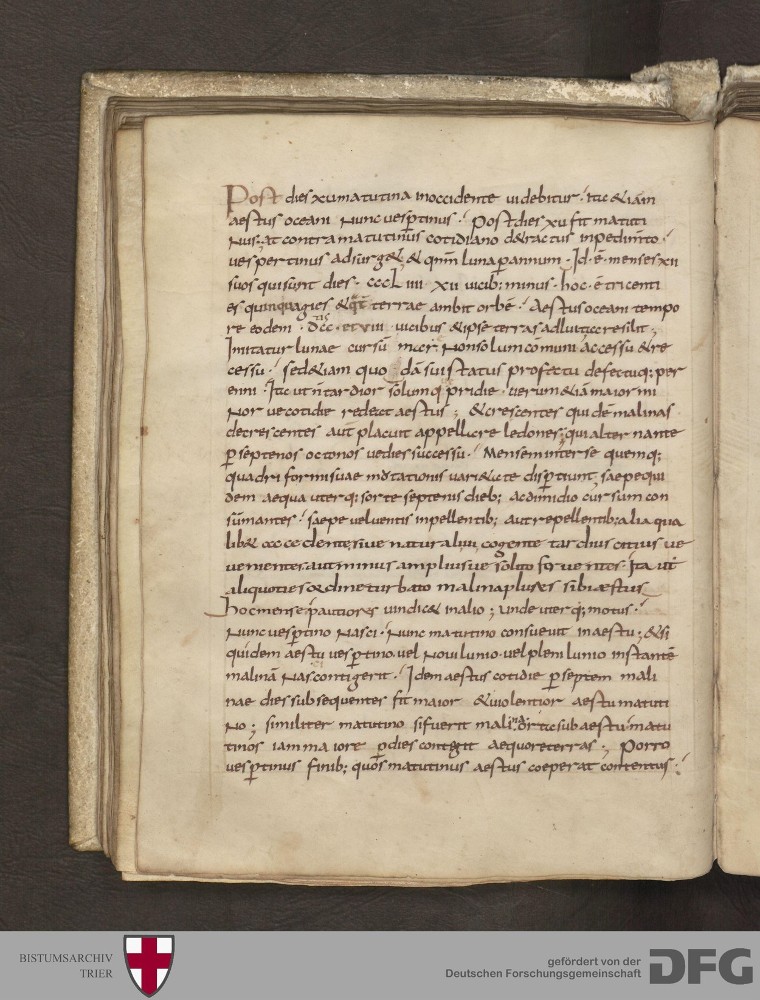 Post dies xv matutina in occidente videbitur. Ita & iam
aestus oceani nunc vesptinus. Post dies xv fit matuti
nus; at contra matutinus cotidiano detractus inpedim̄to.
vesptinus adsurget, & qm̄ luna p annum. Id ē menses xii
suos qui sunt dies. cccL iiii. xii vicib; minus. hoc ē tricenti
es quinquagies & terrae ambit orbē. Aestus oceani tempo
re eodem. dcc. et viii vicibus & ipse terras adluit ac resilit;
Imitatur lunae cursū mar Non solum cōmuni accessu & re
cessu. sed & iam quo dā sui status profectu defectuq; per
enni. Ita ut n̄ tardior solumq pridie. verum & iā maior mi
nor ve cotidie redeat aestus; & crescentes qui dē malinas
decrescentes aut̄ placuit appellare ledones; qui alter nante
p septenos octonos ve dies successu. Mensem inter se quemq;
quadri formi suae mutationis varietate disptiunt, saepe qui
dem aequa uterq; sorte septenis dieb; ac dimidio cursum con
sūmantes. saepe vel ventis inpellentib; aut repellentib; alia qua
lib& accedente, sive naturali cogente tardius citius ve
venientes, aut minus amplius ve solito ferventes. Ita ut
aliquoties ordine turbato malina plures sibi aestus
hoc mense pauciores vindic& in alio; unde uterq; motus.
Nunc vesptino nasci. Nunc matutino consuevit in aestu; & si
quidem aestu vesptino vel Novi lunio. vel pleni lunio instantē
malinā nasci contigerit. Idem aestus cotidie p septem mali
nae dies subsequentes fit maior & violentior aestu matuti
no; similiter matutino si fuerit malina orta sub aestu matu
tinos iam maiore p dies contegit aequore terras; Porro
vesptinus finib; quos matutinus aestus coeperat contentus.
BISTUMSARCHIV
TRIER
gefördert von der
Deutschen Forschungsgemeinschaft
DFG